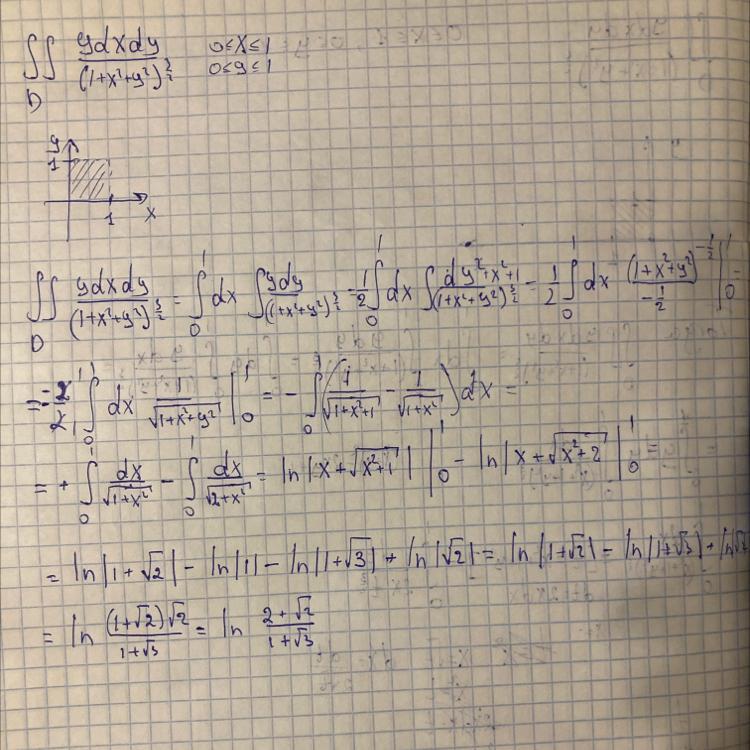 ∬ ydxdy / (1+x²+y²)^(3/2) 0≤x≤1
D 0≤y≤1
y
1
1 x
∬ ydxdy / (1+x²+y²)^(3/2) = ∫₀¹ dx ∫ ydy / (1+x²+y²)^(3/2) = 1/2 ∫₀¹ dx ∫ dy²+x²+1 / (1+x²+y²)^(3/2) = 1/2 ∫₀¹ dx (1+x²+y²)^(-1/2) / (-1/2) |₀¹ =
D
= -2/2 ∫₀¹ dx 1/√(1+x²+y²) |₀¹ = - ∫₀¹ (1/√(1+x²+1) - 1/√(1+x²)) dx =
= + ∫₀¹ dx/√(1+x²) - ∫₀¹ dx/√(2+x²) = ln|x+√(x²+1)| |₀¹ - ln|x+√(x²+2)| |₀¹ =
= ln|1+√2| - ln|1| - ln|1+√3| + ln|√2| = ln|1+√2| - ln|1+√3| + ln|√2
= ln (1+√2)√2 / 1+√3 = ln 2+√2 / 1+√3